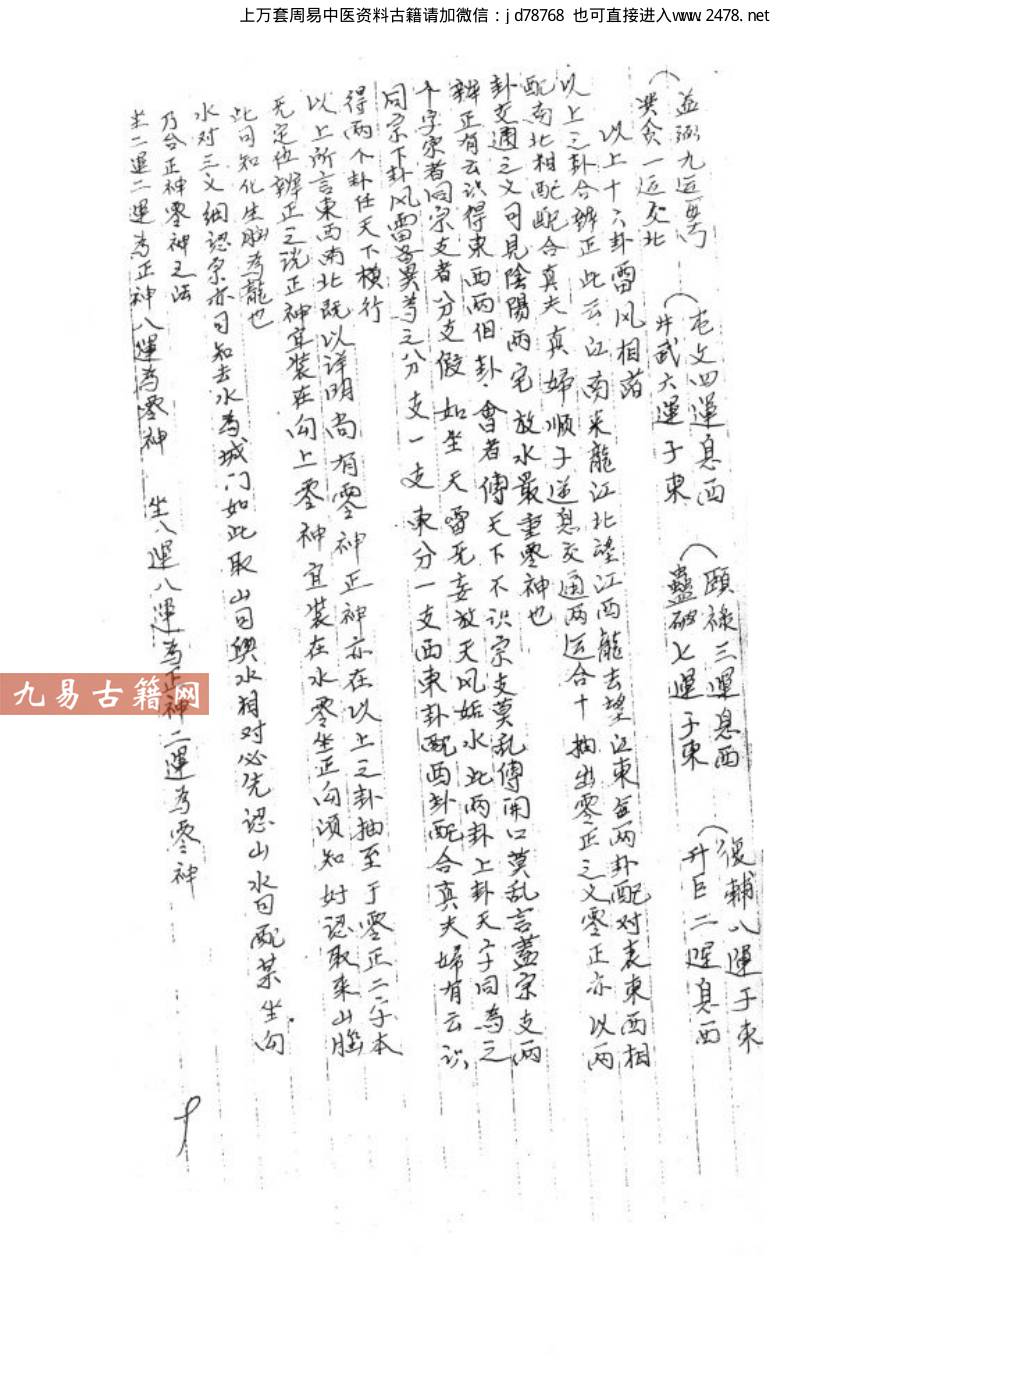 上万套周易中医资料古籍请加微信：jd78768 也可直接进入www.2478.net
益弼九運
屯文四運息西
頤祿三運息西
復輔八運子東
井武六運子東
蠱破七運子東
升巨二運息西
以上十六卦雷风相薄
以上之卦合辨正此云江南来龍江北望江西龍去望江東每兩卦配对表東西相
配南北相配配合真夫真婦顺子逆息交通两运合十抽出零正之义零正亦以两
卦交通之义可見陰陽兩宅放水最重零神也
辨正有云识得東西两個卦會者傳天下不识宗支莫乱傳開口莫乱言蓋宗支两
个字宗者同宗支者分支假如坐天雷无妄放天风姤水此两卦上卦天字同為之
同宗下卦风雷異為之分支一支東分一支西東卦配西卦配合真夫婦有云识
得两个卦任天下横行
以上所言東西南北既以详明尚有零神正神亦在以上之卦抽至于零正二字本
无定位辨正之说正神宜装在向上零神宜装在水零坐正向须知好认取来山腦
此可知化生腦為龍也
水对三义細認宗亦可知去水為城门如此取山曰與水相对必先認山水曰配某坐向
乃合正神零神之法
坐二運二運為正神八運為零神 坐八運八運為正神二運為零神
九易古籍网